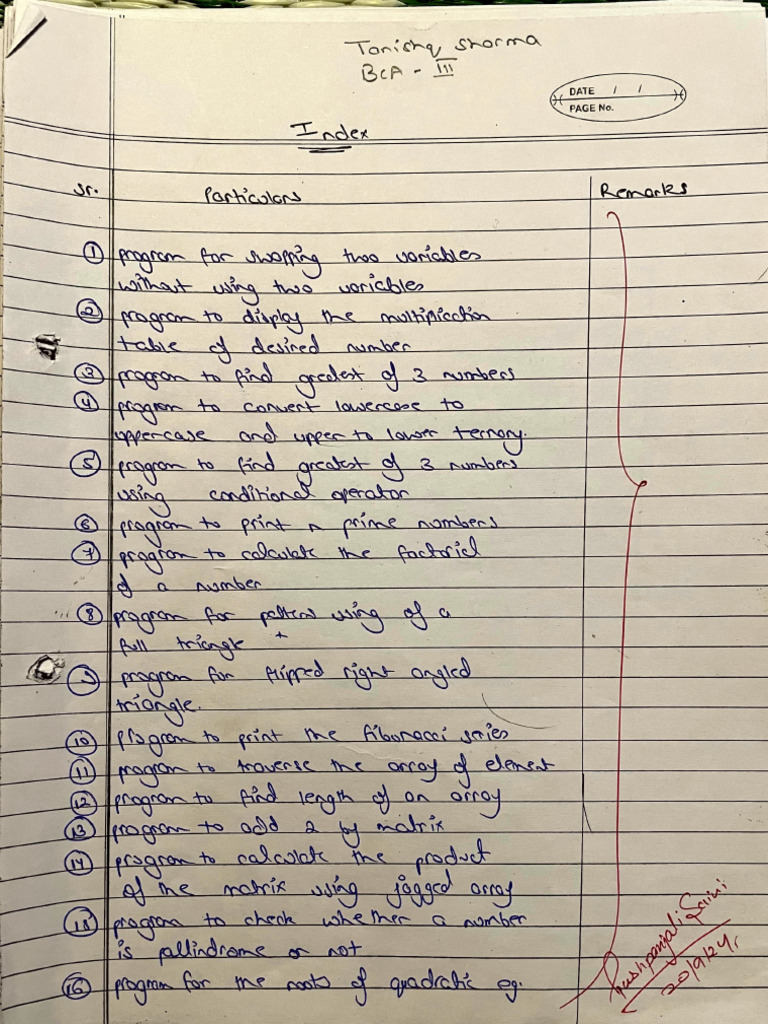 Tanishq Sharma
BCA - III
DATE / /
PAGE No.
Index
Sr. Particulars Remarks
1 program for swapping two variables
without using two variables
2 program to display the multiplication
table of desired number
3 program to find greatest of 3 numbers
4 program to convert lowercase to
uppercase and upper to lower ternary.
5 program to find greatest of 3 numbers
using conditional operator
6 program to print n prime numbers
7 program to calculate the factorial
of a number
8 program for pattern using of a
full triangle
9 program for flipped right angled
triangle.
10 program to print the fibonacci series
11 program to traverse the array of element
12 program to find length of an array
13 program to add 2 by matrix
14 program to calculate the product
of the matrix using jagged array
15 program to check whether a number
is pallindrome or not
16 program for the roots of quadratic eq.
Pushpanjali Saini
20/9/24